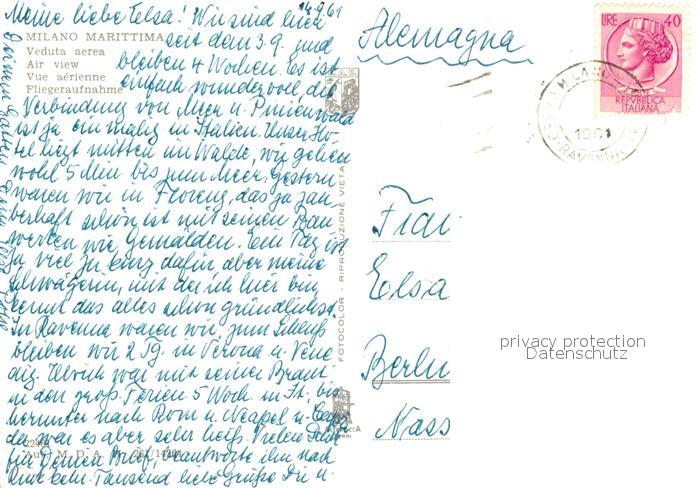 14.9.61
Meine liebe Elsa! Wir sind hier
MILANO MARITTIMA
Veduta aerea
Air view
Vue aérienne
Fliegeraufnahme
seit dem 3.9. und
bleiben 4 Wochen. Es ist
einfach wundervoll die
Verbindung von Meer u. Pinienwald
ist ja einmalig in Italien. Unser Ho-
tel liegt mitten im Walde, wir gehen
wohl 5 Min bis zum Meer. Gestern
waren wir in Florenz, das ja zau-
berhaft schön ist mit seinen Bau
werken wie Gemälden. Ein Tag ist
ja viel zu kurz dafür aber meine
Schwägerin, mit der ich hier bin
kennt das alles schon gründlichst.
In Ravenna waren wir, zum Schluß
bleiben wir 2 Tg. in Verona u. Vene
dig. Ulrich war mit seiner Braut
in den groß. Ferien 5 Woch. in It., bis
herunter nach Rom u. Neapel u. Capri
da war es aber sehr heiß. Vielen Dank
für Deinen Brief, beantworte ihn nach
Rückkehr. Tausend liebe Grüße Dir u.
FOTOCOLOR - RIPRODUZIONE VIETATA
Alemagna
LIRE 40
REPVBBLICA
ITALIANA
1961
RAVENNA
Frau
Elsa
Berlin
Nass
privacy protection
Datenschutz